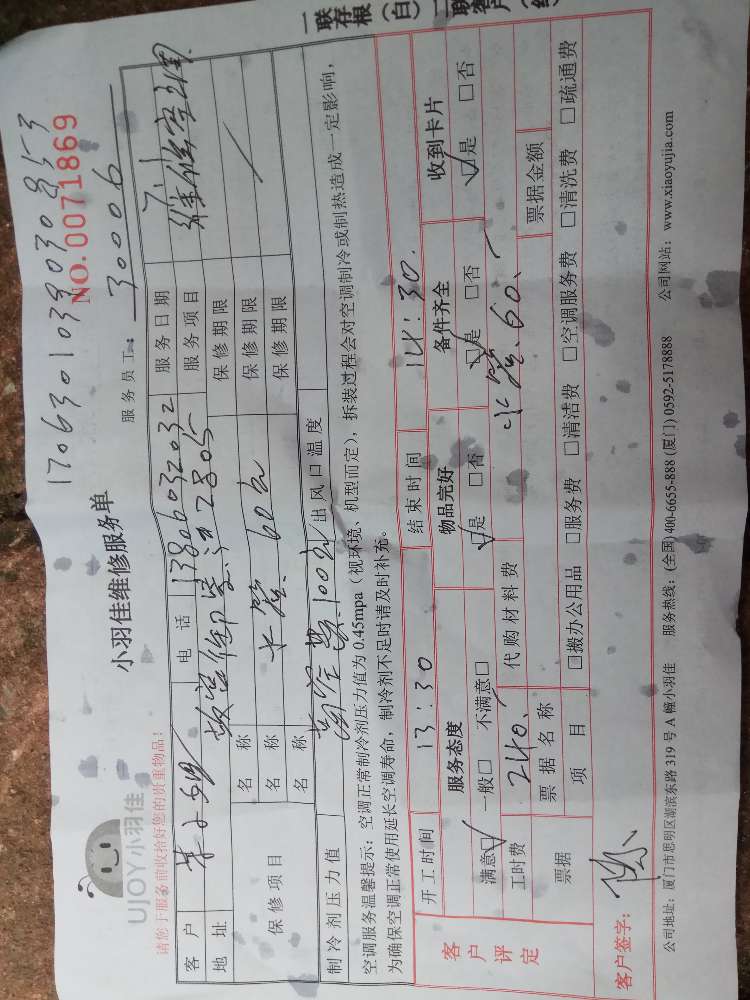 一联存根（白）二联客户（红
1706301039030953
NO.0071869
小羽佳维修服务单
UJOY小羽佳
请您于服务前收拾好您的贵重物品！
服务员工：30006
客户 电话 13806032032 服务日期 7.1
地址 2805 服务项目 维修空调
保修项目 名称 水管 60元 保修期限
名称 保修期限
名称 保修期限
制冷剂压力值 100元 出风口温度
空调服务温馨提示：空调正常制冷剂压力值为0.45mpa（视环境、机型而定），拆装过程会对空调制冷或制热造成一定影响，
为确保空调正常使用延长空调寿命，制冷剂不足时请及时补充。
客户评定 开工时间 13：30 结束时间 14：30
服务态度 物品完好 备件齐全 收到卡片
满意□ 一般□ 不满意□ □是 □否 □是 □否 □是 □否
工时费 240. 代购材料费 水管 60.
票据 票据名称 票据金额
项目 □搬办公用品 □服务费 □清洁费 □空调服务费 □清洗费 □疏通费
客户签字：
公司地址：厦门市思明区湖滨东路319号A幢小羽佳 服务热线：(全国)400-6655-888 (厦门) 0592-5178888 公司网站：www.xiaoyujia.com